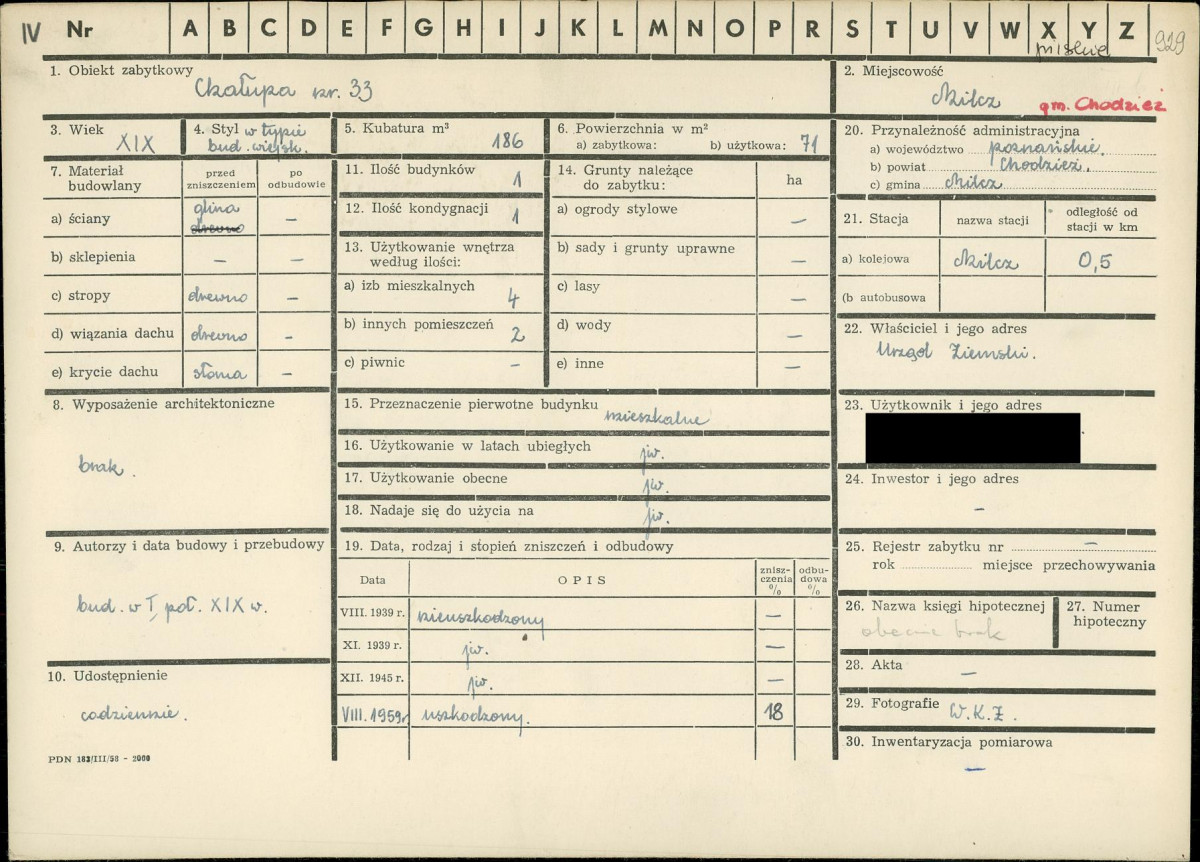 IV Nr A B C D E F G H I J K L M N O P R S T U V W X Y Z 929
pilskie
1. Obiekt zabytkowy
Chałupa nr. 33
2. Miejscowość
Milcz gm. Chodzież
3. Wiek
XIX
4. Styl w typie
bud. wiejsk.
5. Kubatura m³
186
6. Powierzchnia w m²
a) zabytkowa: b) użytkowa: 71
20. Przynależność administracyjna
a) województwo poznańskie.
b) powiat Chodzież.
c) gmina Milcz
7. Materiał
budowlany
przed
zniszczeniem
po
odbudowie
a) ściany glina –
drewno
b) sklepienia – –
c) stropy drewno –
d) wiązania dachu drewno –
e) krycie dachu słoma –
11. Ilość budynków 1
12. Ilość kondygnacji 1
13. Użytkowanie wnętrza
według ilości:
a) izb mieszkalnych 4
b) innych pomieszczeń 2
c) piwnic –
14. Grunty należące
do zabytku:
ha
a) ogrody stylowe –
b) sady i grunty uprawne –
c) lasy –
d) wody –
e) inne –
21. Stacja nazwa stacji odległość od
stacji w km
a) kolejowa Milcz 0,5
(b autobusowa
22. Właściciel i jego adres
Urząd Ziemski.
8. Wyposażenie architektoniczne
brak.
15. Przeznaczenie pierwotne budynku mieszkalne
16. Użytkowanie w latach ubiegłych jw.
17. Użytkowanie obecne jw.
18. Nadaje się do użycia na jw.
23. Użytkownik i jego adres
24. Inwestor i jego adres
–
9. Autorzy i data budowy i przebudowy
bud. w I poł. XIX w.
19. Data, rodzaj i stopień zniszczeń i odbudowy
Data OPIS znisz-
czenia
% odbu-
dowa
%
VIII. 1939 r. nieuszkodzony –
XI. 1939 r. jw. –
XII. 1945 r. jw. –
VIII. 1959 r. uszkodzony. 18
25. Rejestr zabytku nr –
rok miejsce przechowywania
26. Nazwa księgi hipotecznej
obecnie brak
27. Numer
hipoteczny
10. Udostępnienie
codziennie.
28. Akta –
29. Fotografie W.K.Z.
30. Inwentaryzacja pomiarowa
–
PDN 183/III/58 - 2000